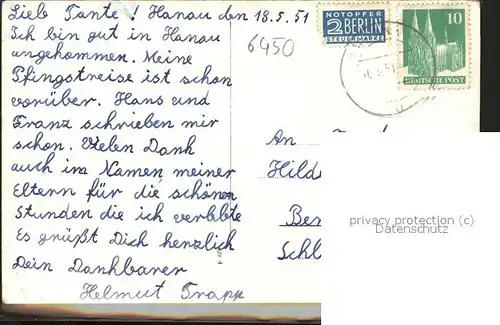 Lieb Tante! Hanau den 18.5.51
Ich bin gut in Hanau
angekommen. Meine
Pfingstreise ist schon
vorüber. Hans und
Franz schrieben mir
schon. Vielen Dank
auch im Namen meiner
Eltern für die schönen
Stunden die ich verlebte
Es grüßt Dich herzlich
Dein Dankbarer
Helmut Trapp
6450
NOTOPFER
2 BERLIN
STEUERMARKE
10
DEUTSCHE POST
An
Hild
Ben
Schl
privacy protection (c)
Datenschutz